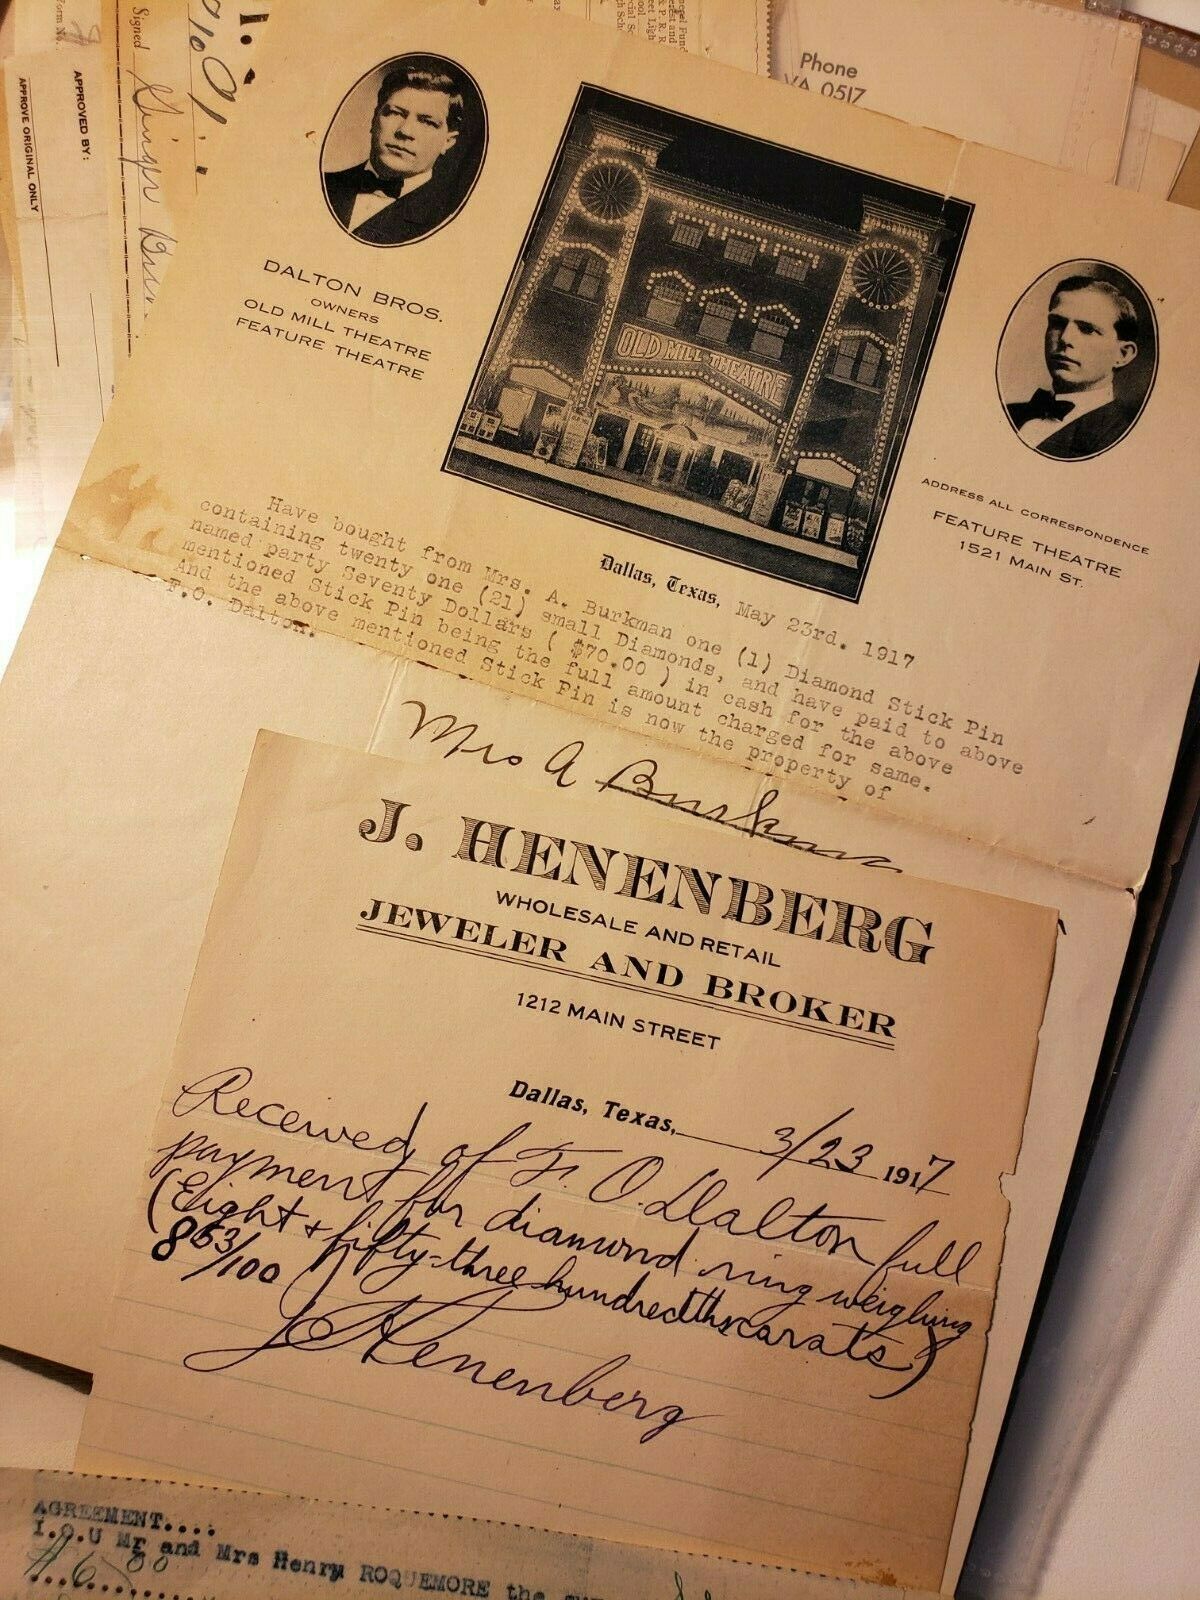 Form No.
APPROVED BY:
APPROVE ORIGINAL ONLY
Signed Singer Bros.
Phone
VA 0517
DALTON BROS.
OWNERS
OLD MILL THEATRE
FEATURE THEATRE
OLD MILL THEATRE
ADDRESS ALL CORRESPONDENCE
FEATURE THEATRE
1521 MAIN ST.
Dallas, Texas, May 23rd. 1917
Have bought from Mrs. A. Burkman one (1) Diamond Stick Pin
containing twenty one (21) small Diamonds, and have paid to above
named party Seventy Dollars ( $70.00 ) in cash for the above
mentioned Stick Pin being the full amount charged for same.
And the above mentioned Stick Pin is now the property of
F.O. Dalton.
Mrs A Burkman
J. HENENBERG
WHOLESALE AND RETAIL
JEWELER AND BROKER
1212 MAIN STREET
Dallas, Texas, 3/23 1917
Received of F. O. Dalton full
payment for diamond ring weighing
(Eight & fifty-three hundredths carats)
8 53/100
J Henenberg
AGREEMENT....
I.O.U Mr and Mrs Henry ROQUEMORE the